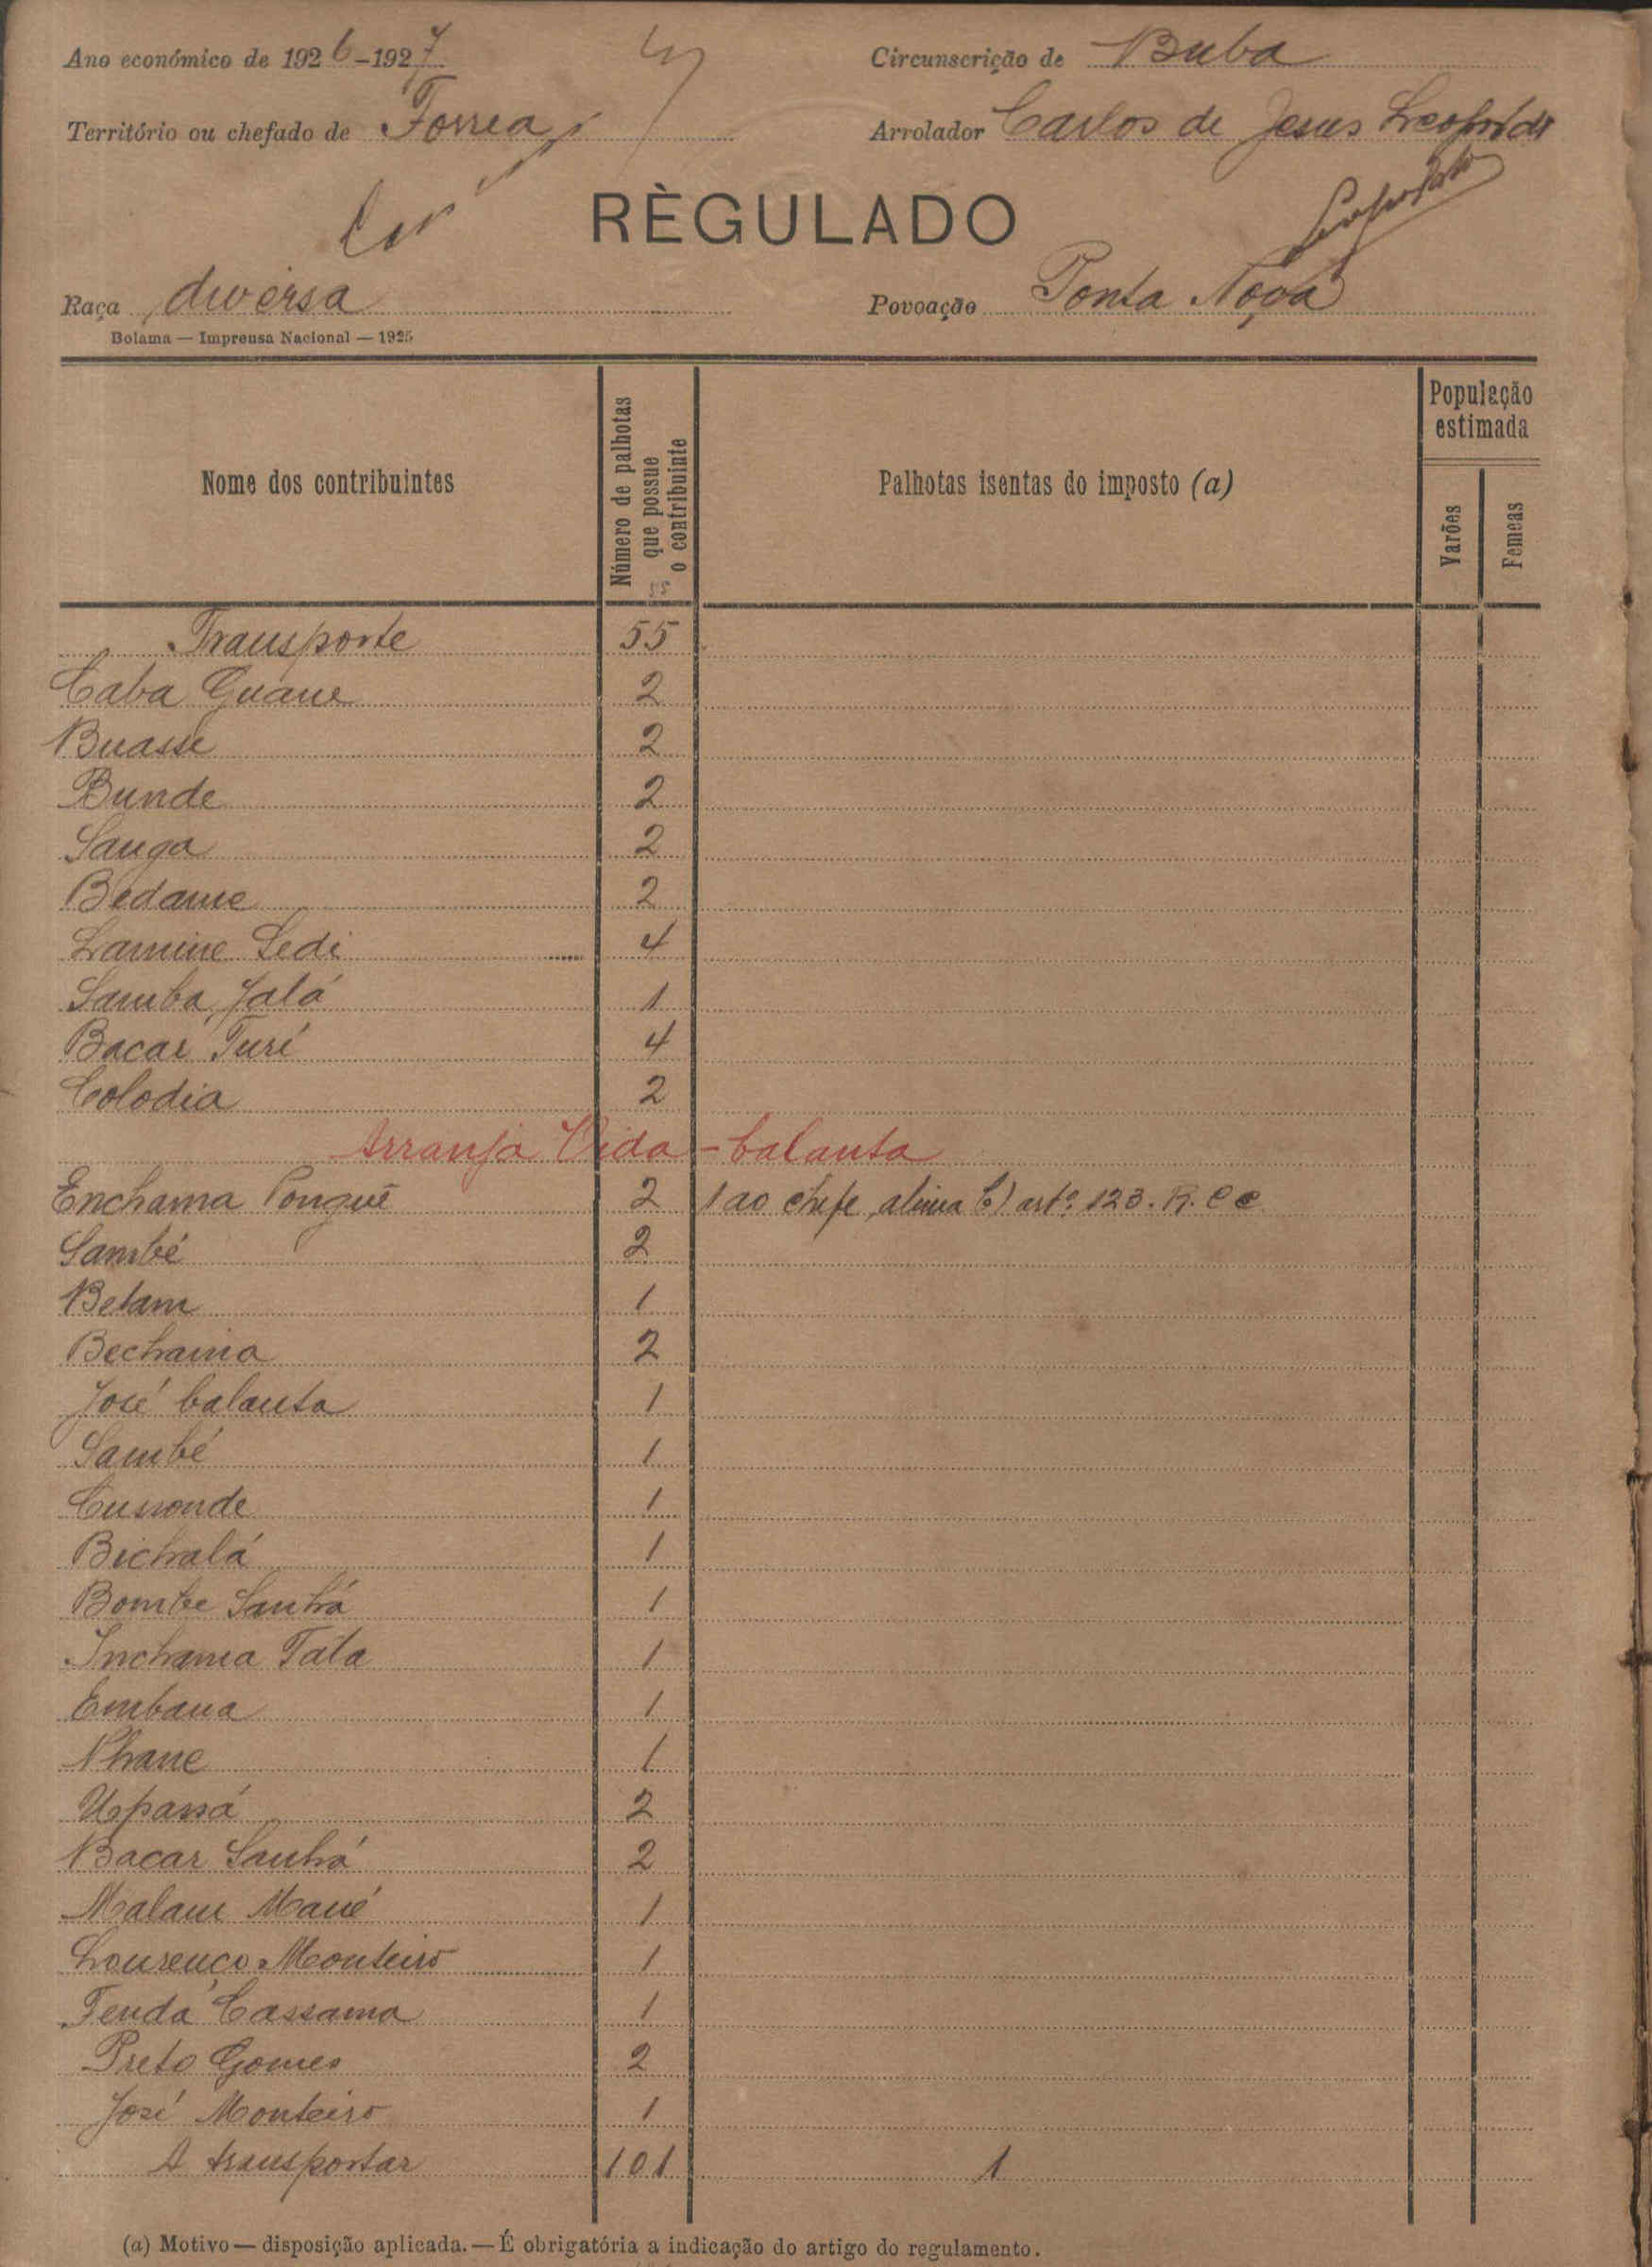 Ano económico de 1926-1927
Circunscrição de Buba
Território ou chefado de Forrea
Arrolador Carlos de Jesus Leopoldo
RÈGULADO
Raça diversa
Povoação Ponta Nova
Bolama — Imprensa Nacional — 1925
Nome dos contribuintes
Número de palhotas que possue o contribuinte
Palhotas isentas do imposto (a)
População estimada
Varões
Femeas
Transporte 55
Caba Guane 2
Buasse 2
Bunde 2
Sanga 2
Bedame 2
Lamine Sedi 4
Samba Jaló 1
Bacar Turé 4
Colodia 2
Arranja Vida - balanta
Enchama Pongue 2 1 ao chefe, alinea b) artº 123. R. C c
Sambé 2
Betam 1
Bechama 2
José balanta 1
Sambé 1
Cussonde 1
Bichalá 1
Bombe Santrá 1
Inchama Tata 1
Embana 1
Nhane 1
Upassá 2
Bacar Sanhá 2
Malam Mané 1
Lourenço Monteiro 1
Tenda Cassama 1
Preto Gomes 2
José Monteiro 1
A transportar 101 1
(a) Motivo — disposição aplicada. — É obrigatória a indicação do artigo do regulamento.